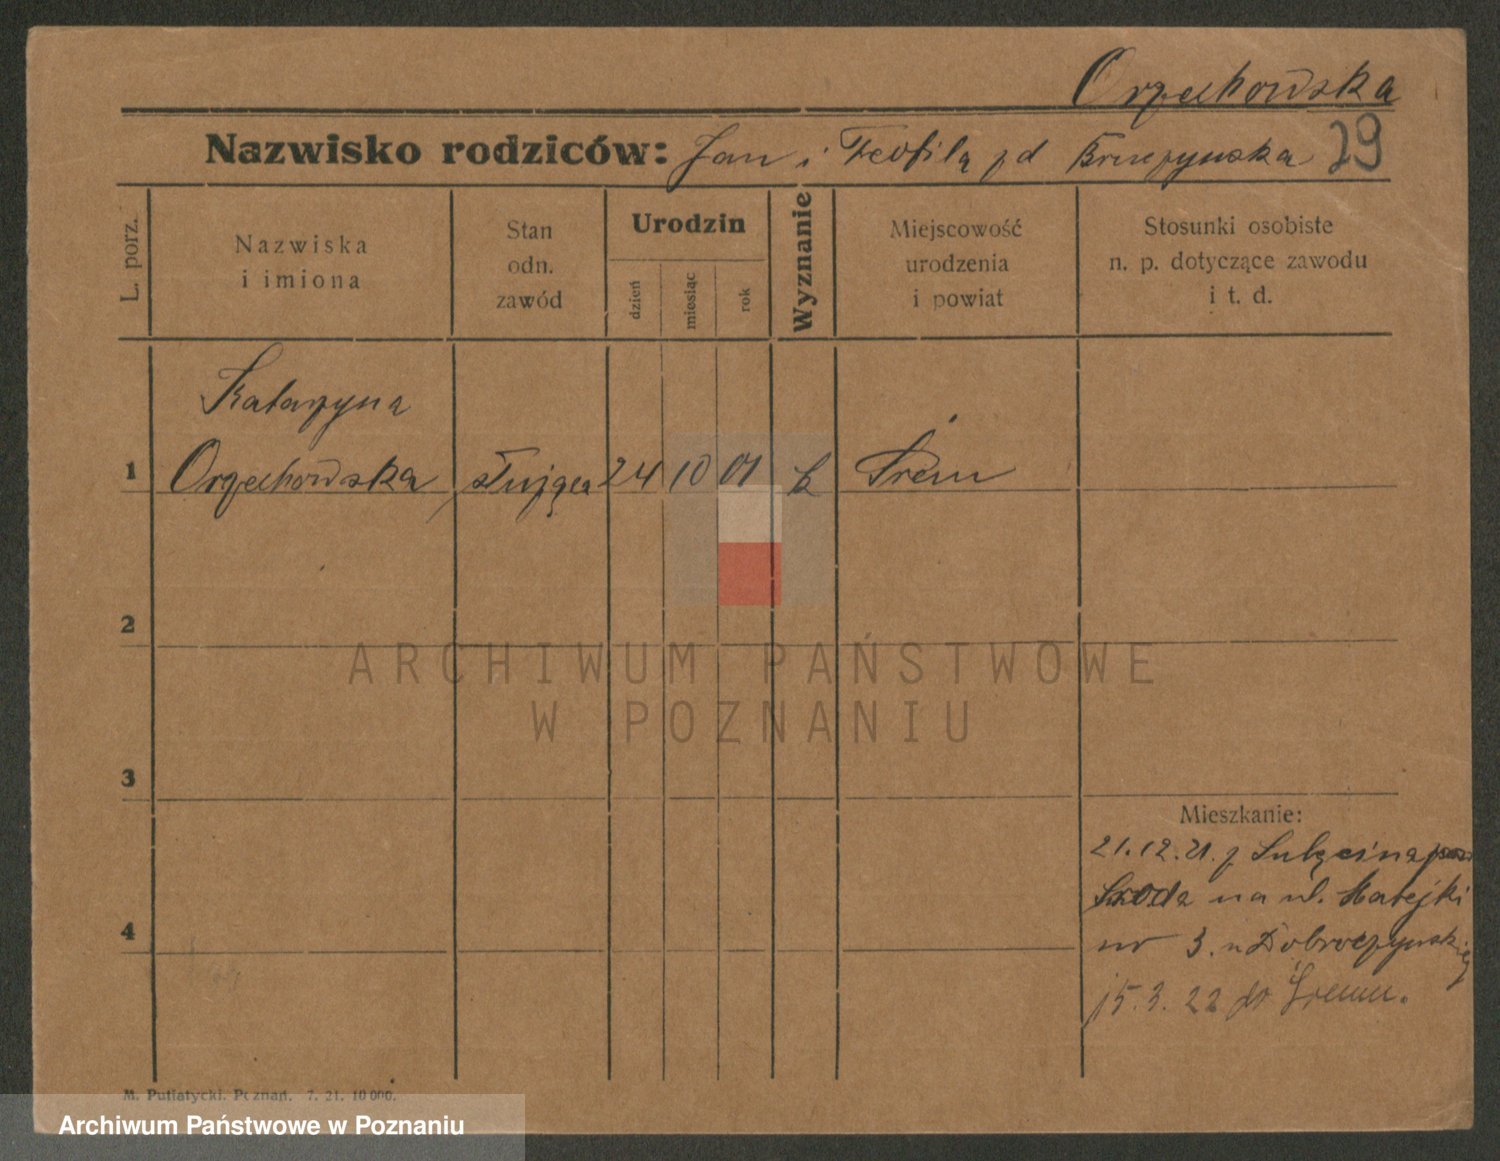 Orzechowska
Nazwisko rodziców: Jan i Teofila zd 29
L. porz.
Nazwiska
i imiona
Stan
odn.
zawód
Urodzin
dzień
miesiąc
rok
Wyznanie
Miejscowość
urodzenia
i powiat
Stosunki osobiste
n. p. dotyczące zawodu
i t. d.
Katarzyna
1 Orzechowska służąca 24 10 01 k Śrem
2
ARCHIWUM PAŃSTWOWE
W POZNANIU
3
Mieszkanie:
21.12.21. z
Środa na ul. Matejki
4
nr 3. u Dobroczyńskiej
15.3.22 do Śremu.
M. Putiatycki. Poznań. 7. 21. 10 000.
Archiwum Państwowe w Poznaniu